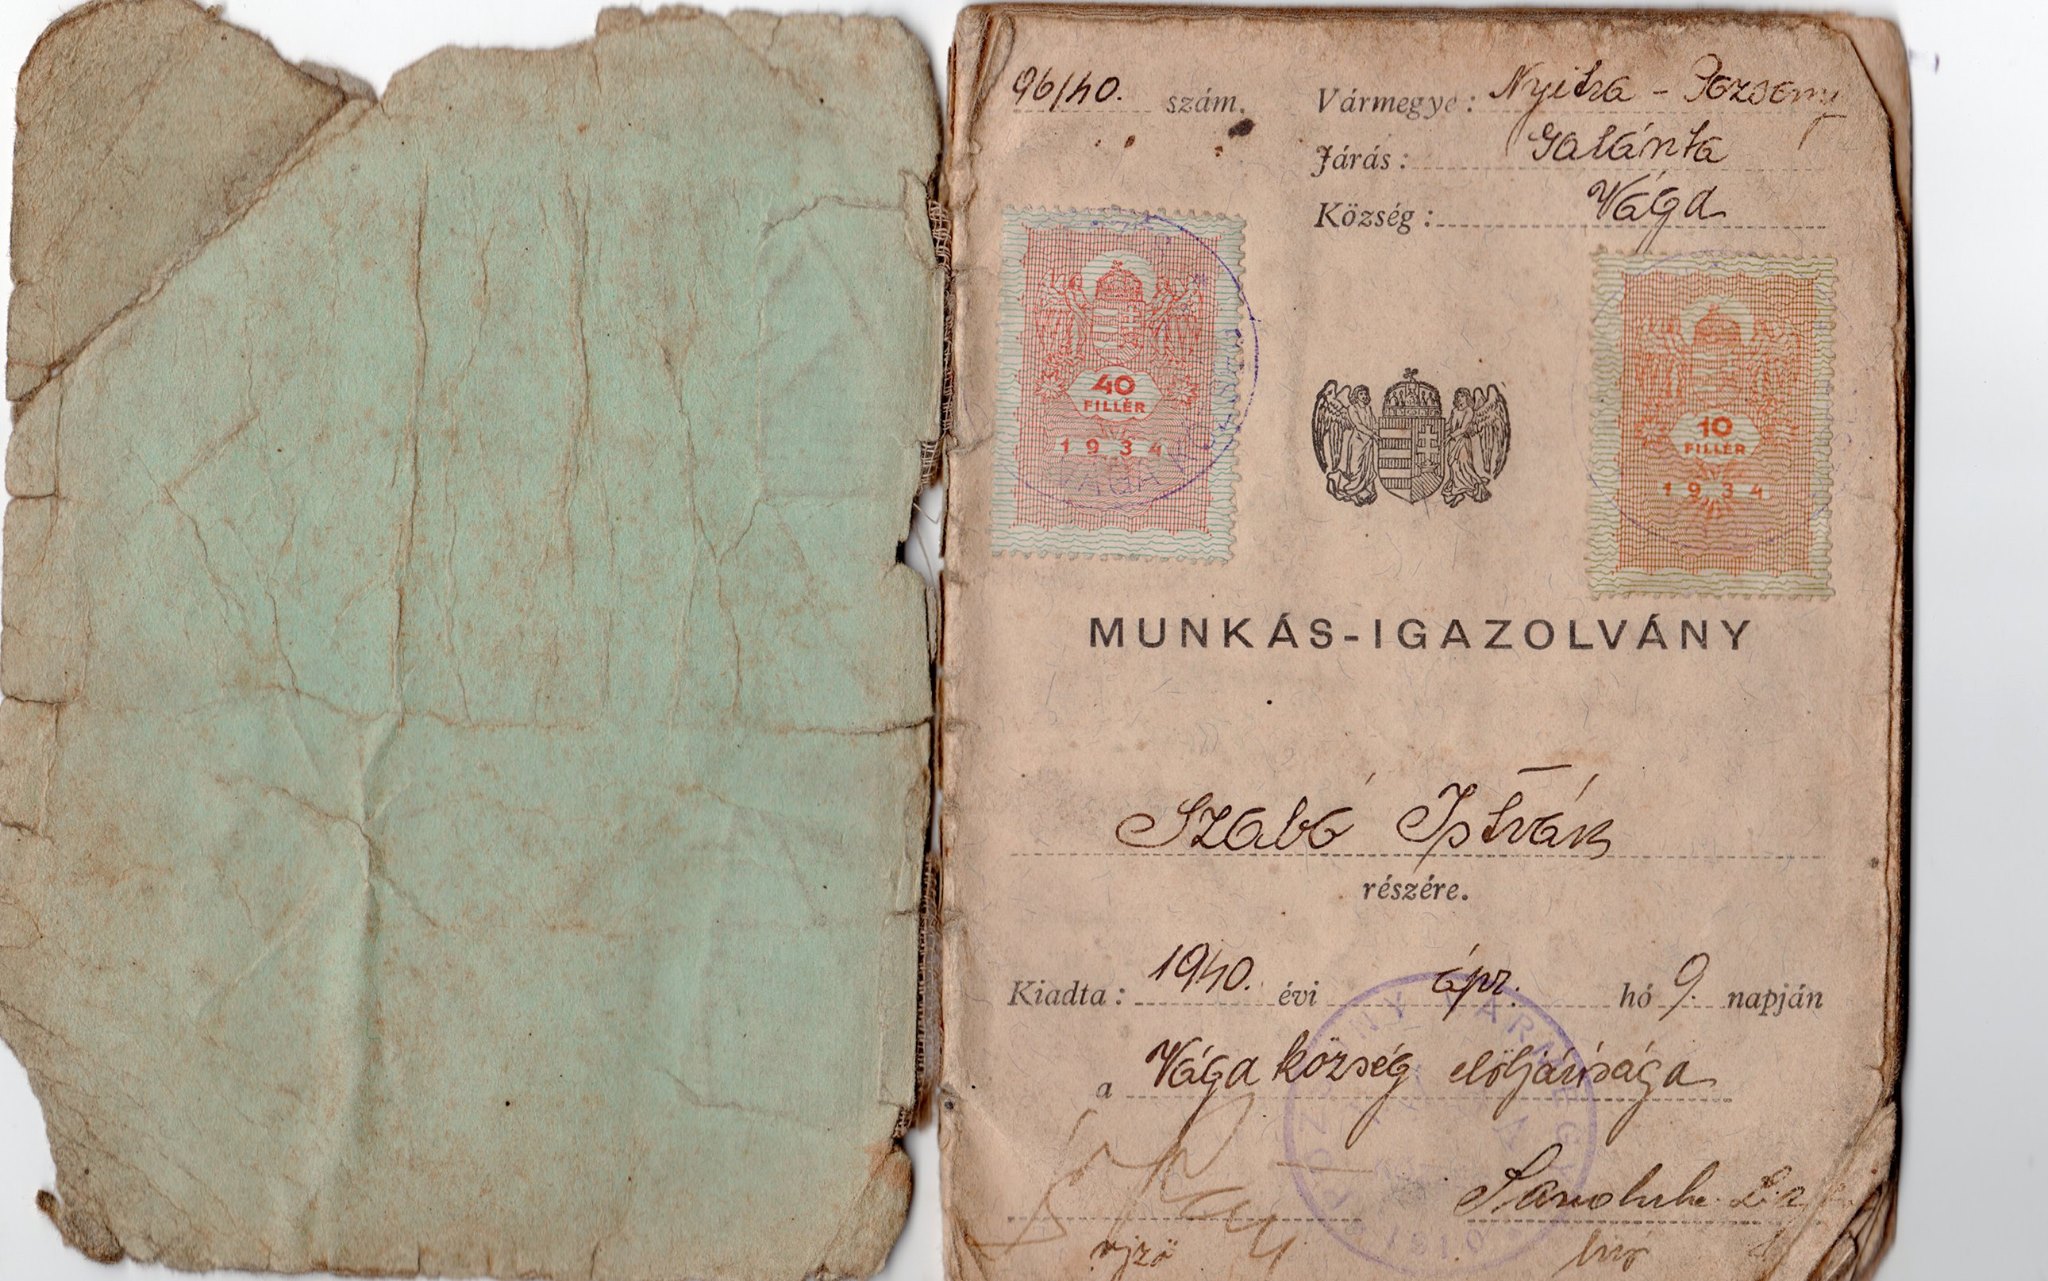 96/40. szám.
Vármegye: Nyitra - Pozsony
Járás: Galánta
Község: Vága
40
FILLÉR
1934
VÁGA
10
FILLÉR
1934
MUNKÁS-IGAZOLVÁNY
Szabó István
részére.
Kiadta: 1940. évi ápr. hó 9. napján
a Vága község elöljárósága
POZSONY VÁRMEGYE
1910
bíró